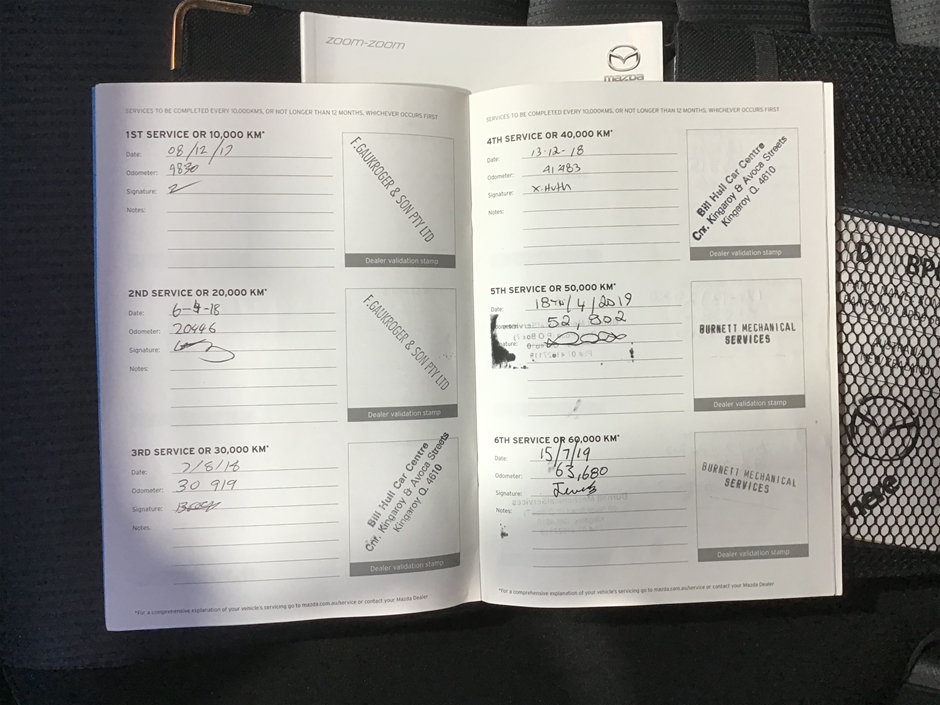 ZOOM-ZOOM
mazda
SERVICES TO BE COMPLETED EVERY 10,000KMS, OR NOT LONGER THAN 12 MONTHS, WHICHEVER OCCURS FIRST
1ST SERVICE OR 10,000 KM*
Date: 08/12/17
Odometer: 9830
Signature:
Notes:
F. GAUKROGER & SON PTY LTD
Dealer validation stamp
2ND SERVICE OR 20,000 KM*
Date: 6-4-18
Odometer: 20446
Signature:
Notes:
F. GAUKROGER & SON PTY LTD
Dealer validation stamp
3RD SERVICE OR 30,000 KM*
Date: 7/8/18
Odometer: 30 919
Signature:
Notes:
Bill Hull Car Centre
Cnr. Kingaroy & Avoca Streets
Kingaroy Q. 4610
Dealer validation stamp
*For a comprehensive explanation of your vehicle's servicing go to mazda.com.au/service or contact your Mazda Dealer
SERVICES TO BE COMPLETED EVERY 10,000KMS, OR NOT LONGER THAN 12 MONTHS, WHICHEVER OCCURS FIRST
4TH SERVICE OR 40,000 KM*
Date: 13-12-18
Odometer: 41483
Signature: X.Huth
Notes:
Bill Hull Car Centre
Cnr. Kingaroy & Avoca Streets
Kingaroy Q. 4610
Dealer validation stamp
5TH SERVICE OR 50,000 KM*
Date: 18TH/4/2019
52,802
BURNETT MECHANICAL
SERVICES
Dealer validation stamp
6TH SERVICE OR 60,000 KM*
Date: 15/7/19
Odometer: 63,680
Signature:
Notes:
BURNETT MECHANICAL
SERVICES
Dealer validation stamp
*For a comprehensive explanation of your vehicle's servicing go to mazda.com.au/service or contact your Mazda Dealer
here